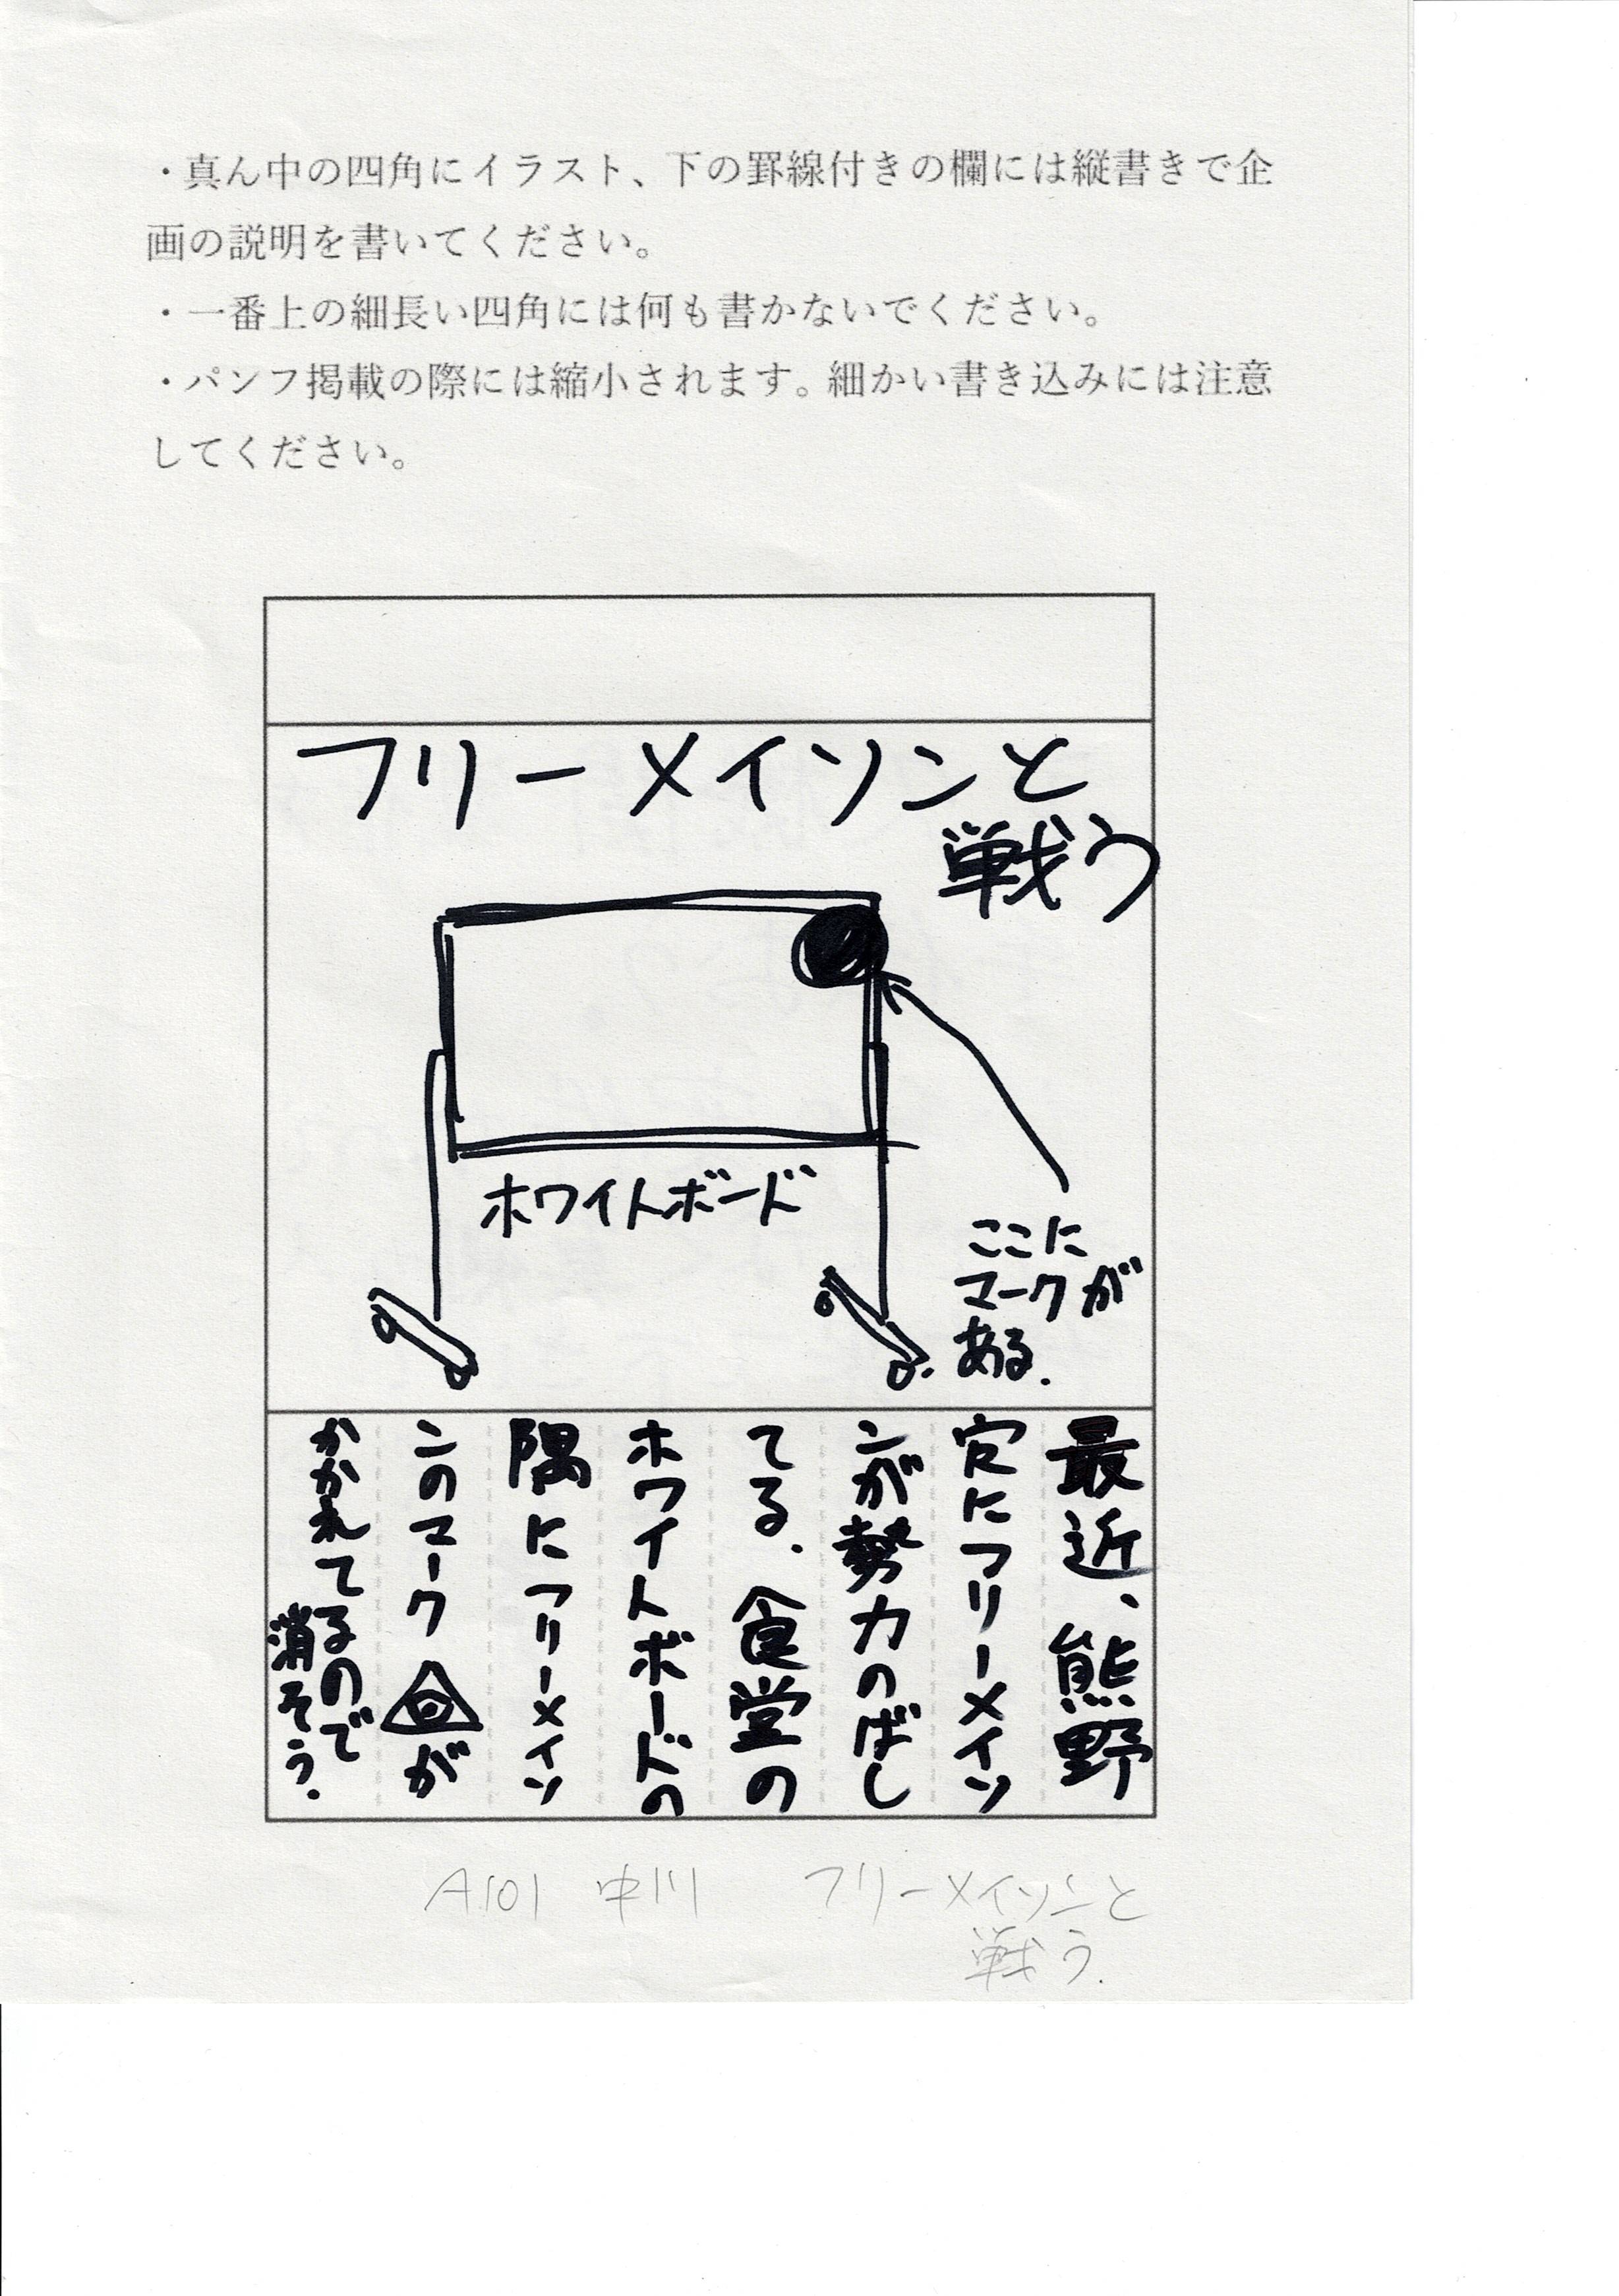 ・真ん中の四角にイラスト、下の罫線付きの欄には縦書きで企
画の説明を書いてください。
・一番上の細長い四角には何も書かないでください。
・パンフ掲載の際には縮小されます。細かい書き込みには注意
してください。
フリーメイソンと
戦う
ホワイトボード
ここに
マークが
ある.
最近、熊野
寮にフリーメイソ
ンが勢力のばし
てる.食堂の
ホワイトボードの
隅にフリーメイソ
ンのマークが
かかれてるので
消そう.
A101 中川 フリーメイソンと
戦う.